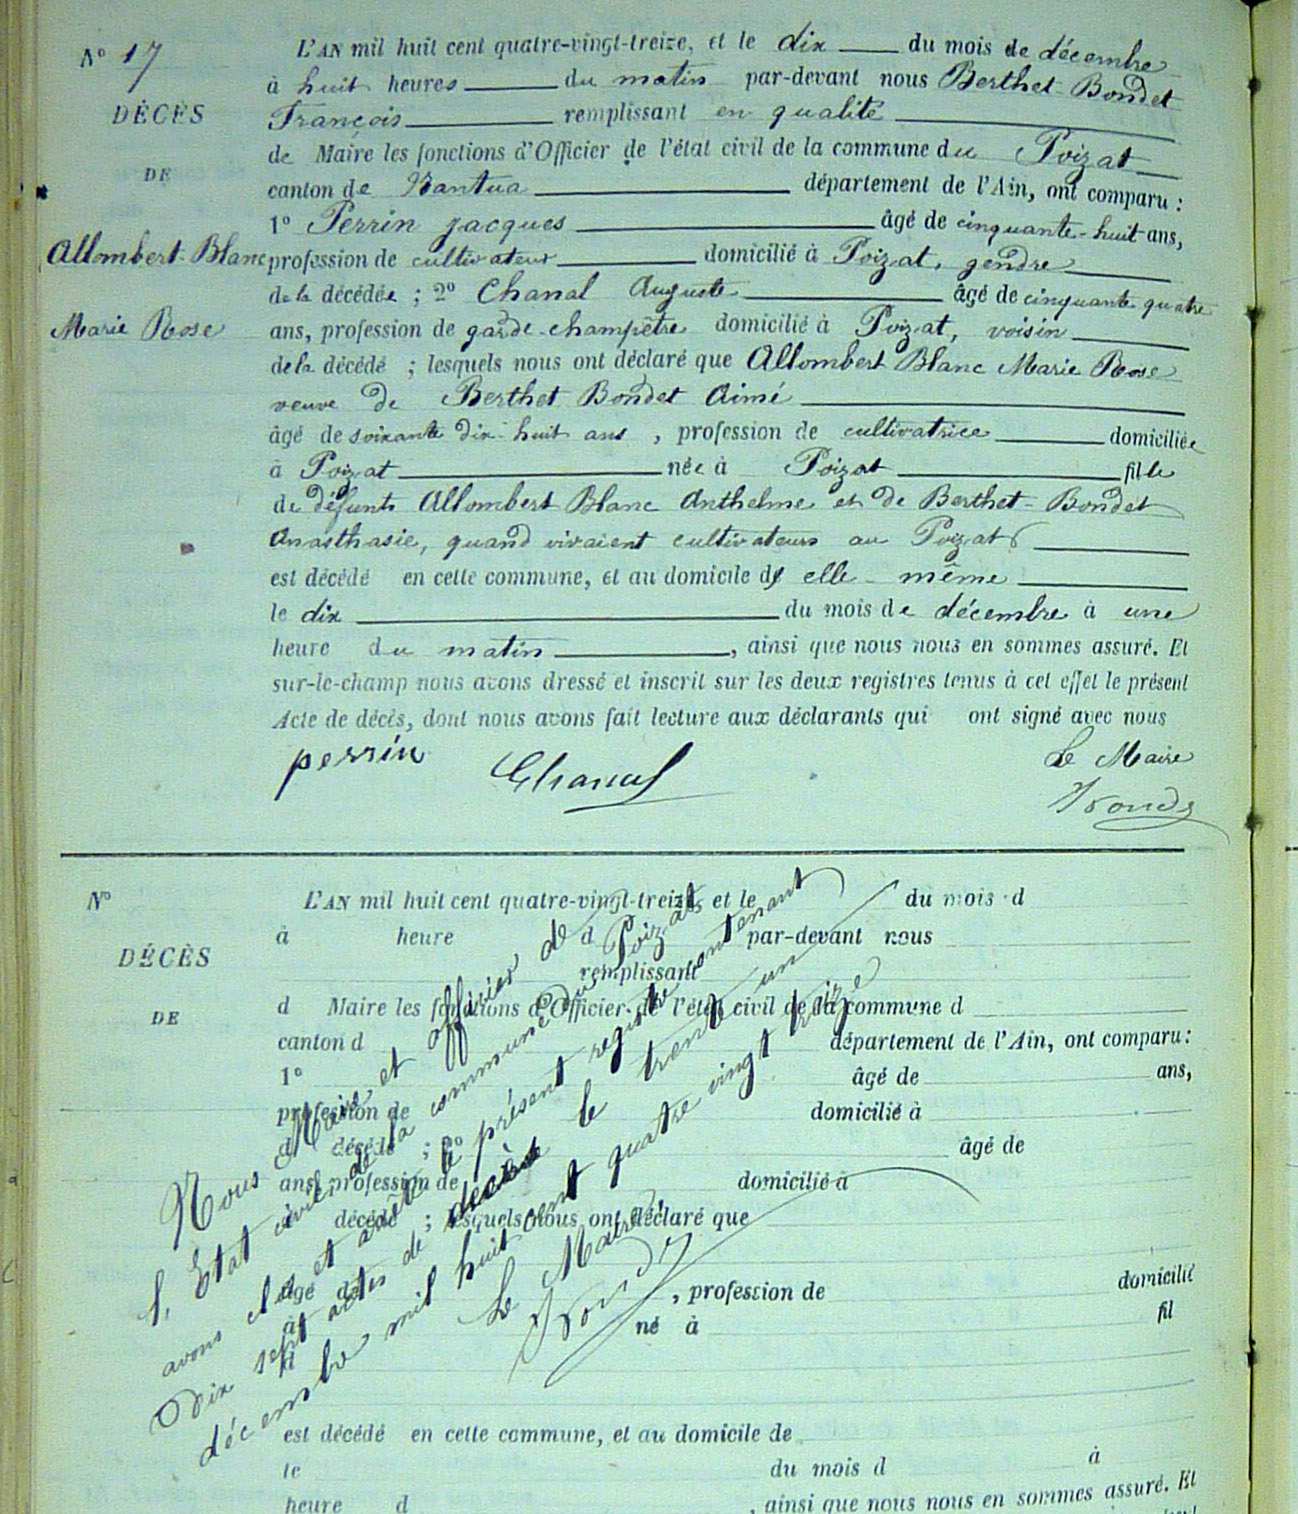 N° 17
DÉCÈS
DE
Allombert-Blanc
Marie Rose
L'AN mil huit cent quatre-vingt-treize, et le dix du mois de décembre
à huit heures du matin par-devant nous Berthet-Bondet
François remplissant en qualité
de Maire les fonctions d'Officier de l'état civil de la commune du Poizat
canton de Nantua département de l'Ain, ont comparu :
1° Perrin Jacques âgé de cinquante-huit ans,
profession de cultivateur domicilié à Poizat, gendre
de la décédée ; 2° Chanal Auguste âgé de cinquante quatre
ans, profession de garde-champêtre domicilié à Poizat, voisin
de la décédé ; lesquels nous ont déclaré que Allombert Blanc Marie Rose
veuve de Berthet Bondet Aimé
âgé de soixante dix-huit ans , profession de cultivatrice domiciliée
à Poizat née à Poizat fille
de défunts Allombert Blanc Anthelme et de Berthet-Bondet
Anasthasie, quand vivaient cultivateurs au Poizat
est décédé en cette commune, et au domicile d' elle-même
le dix du mois de décembre à une
heure du matin , ainsi que nous nous en sommes assuré. Et
sur-le-champ nous avons dressé et inscrit sur les deux registres tenus à cet effet le présent
Acte de décès, dont nous avons fait lecture aux déclarants qui ont signé avec nous
perrin Chanal Le Maire
N°
DÉCÈS
DE
L'AN mil huit cent quatre-vingt-treize, et le du mois d
à heure d par-devant nous
remplissant
d Maire les fonctions d'Officier de l'état civil de la commune d
canton d département de l'Ain, ont comparu :
1° âgé de ans,
profession de domicilié à
d décédé ; 2° âgé de
ans, profession de domicilié à
d décédé ; lesquels nous ont déclaré que
âgé d , profession de domicilié
à né à fil
d
est décédé en cette commune, et au domicile de
le du mois d à
heure d , ainsi que nous nous en sommes assuré. Et
Nous Maire et officier de
l'Etat civil de la commune du Poizat
avons clos et arrêté le présent registre contenant
Dix sept actes de décès le trente un
décembre mil huit cent quatre vingt treize
Le Maire